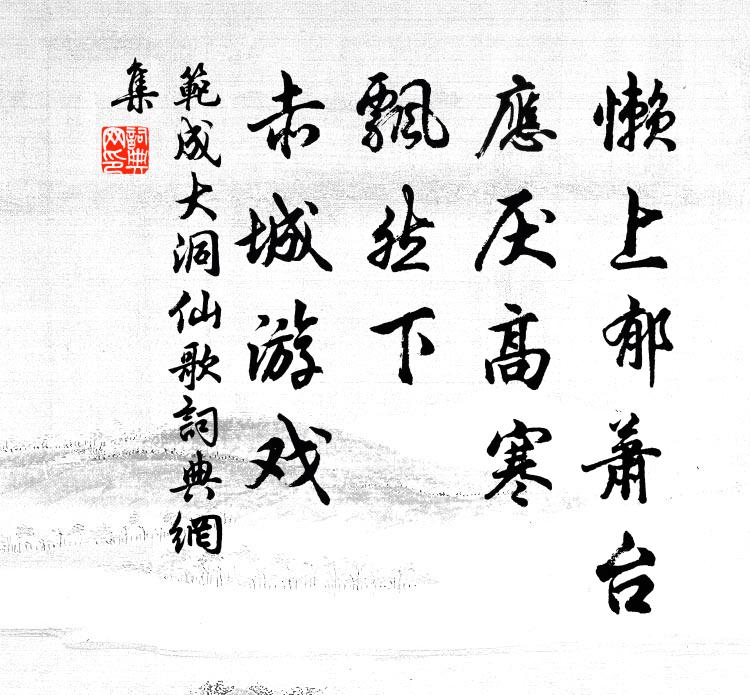 懒上郁萧台
应厌高寒
飘然下
赤城游戏
範成大洞仙歌詞典網
集
詞典网印